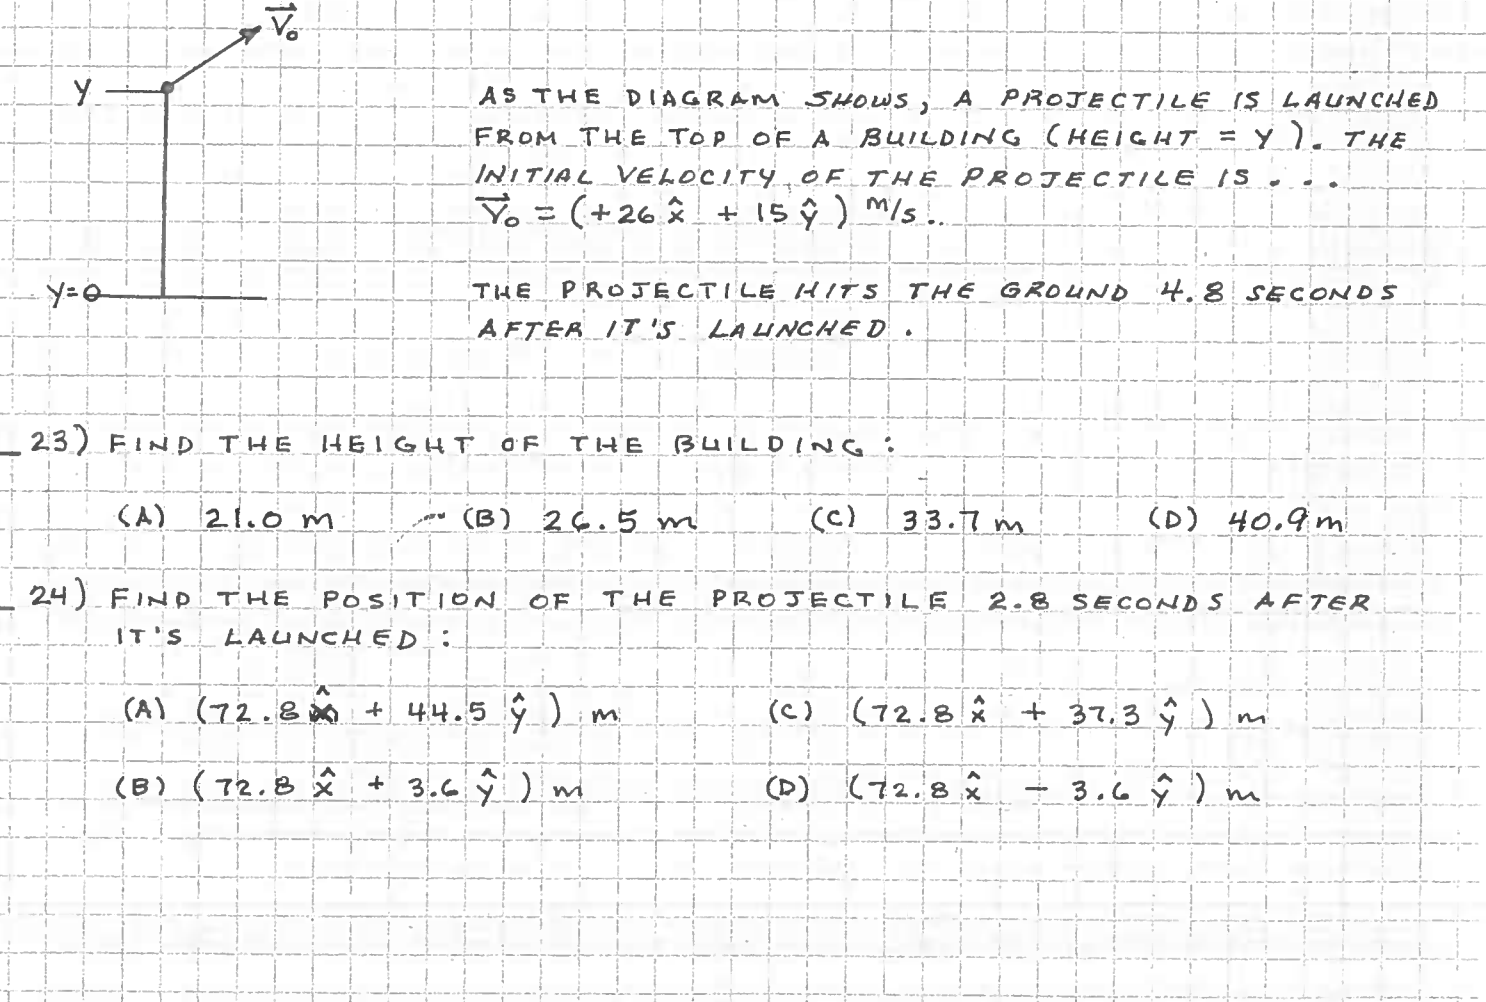 V⃗₀
Y
AS THE DIAGRAM SHOWS, A PROJECTILE IS LAUNCHED
FROM THE TOP OF A BUILDING (HEIGHT = Y). THE
INITIAL VELOCITY OF THE PROJECTILE IS ...
V⃗₀ = (+26 x̂ + 15 ŷ) m/s..
Y=0
THE PROJECTILE HITS THE GROUND 4.8 SECONDS
AFTER IT'S LAUNCHED.
23) FIND THE HEIGHT OF THE BUILDING:
(A) 21.0 m (B) 26.5 m (C) 33.7 m (D) 40.9 m
24) FIND THE POSITION OF THE PROJECTILE 2.8 SECONDS AFTER
IT'S LAUNCHED:
(A) (72.8 x̂ + 44.5 ŷ) m (C) (72.8 x̂ + 37.3 ŷ) m
(B) (72.8 x̂ + 3.6 ŷ) m (D) (72.8 x̂ - 3.6 ŷ) m